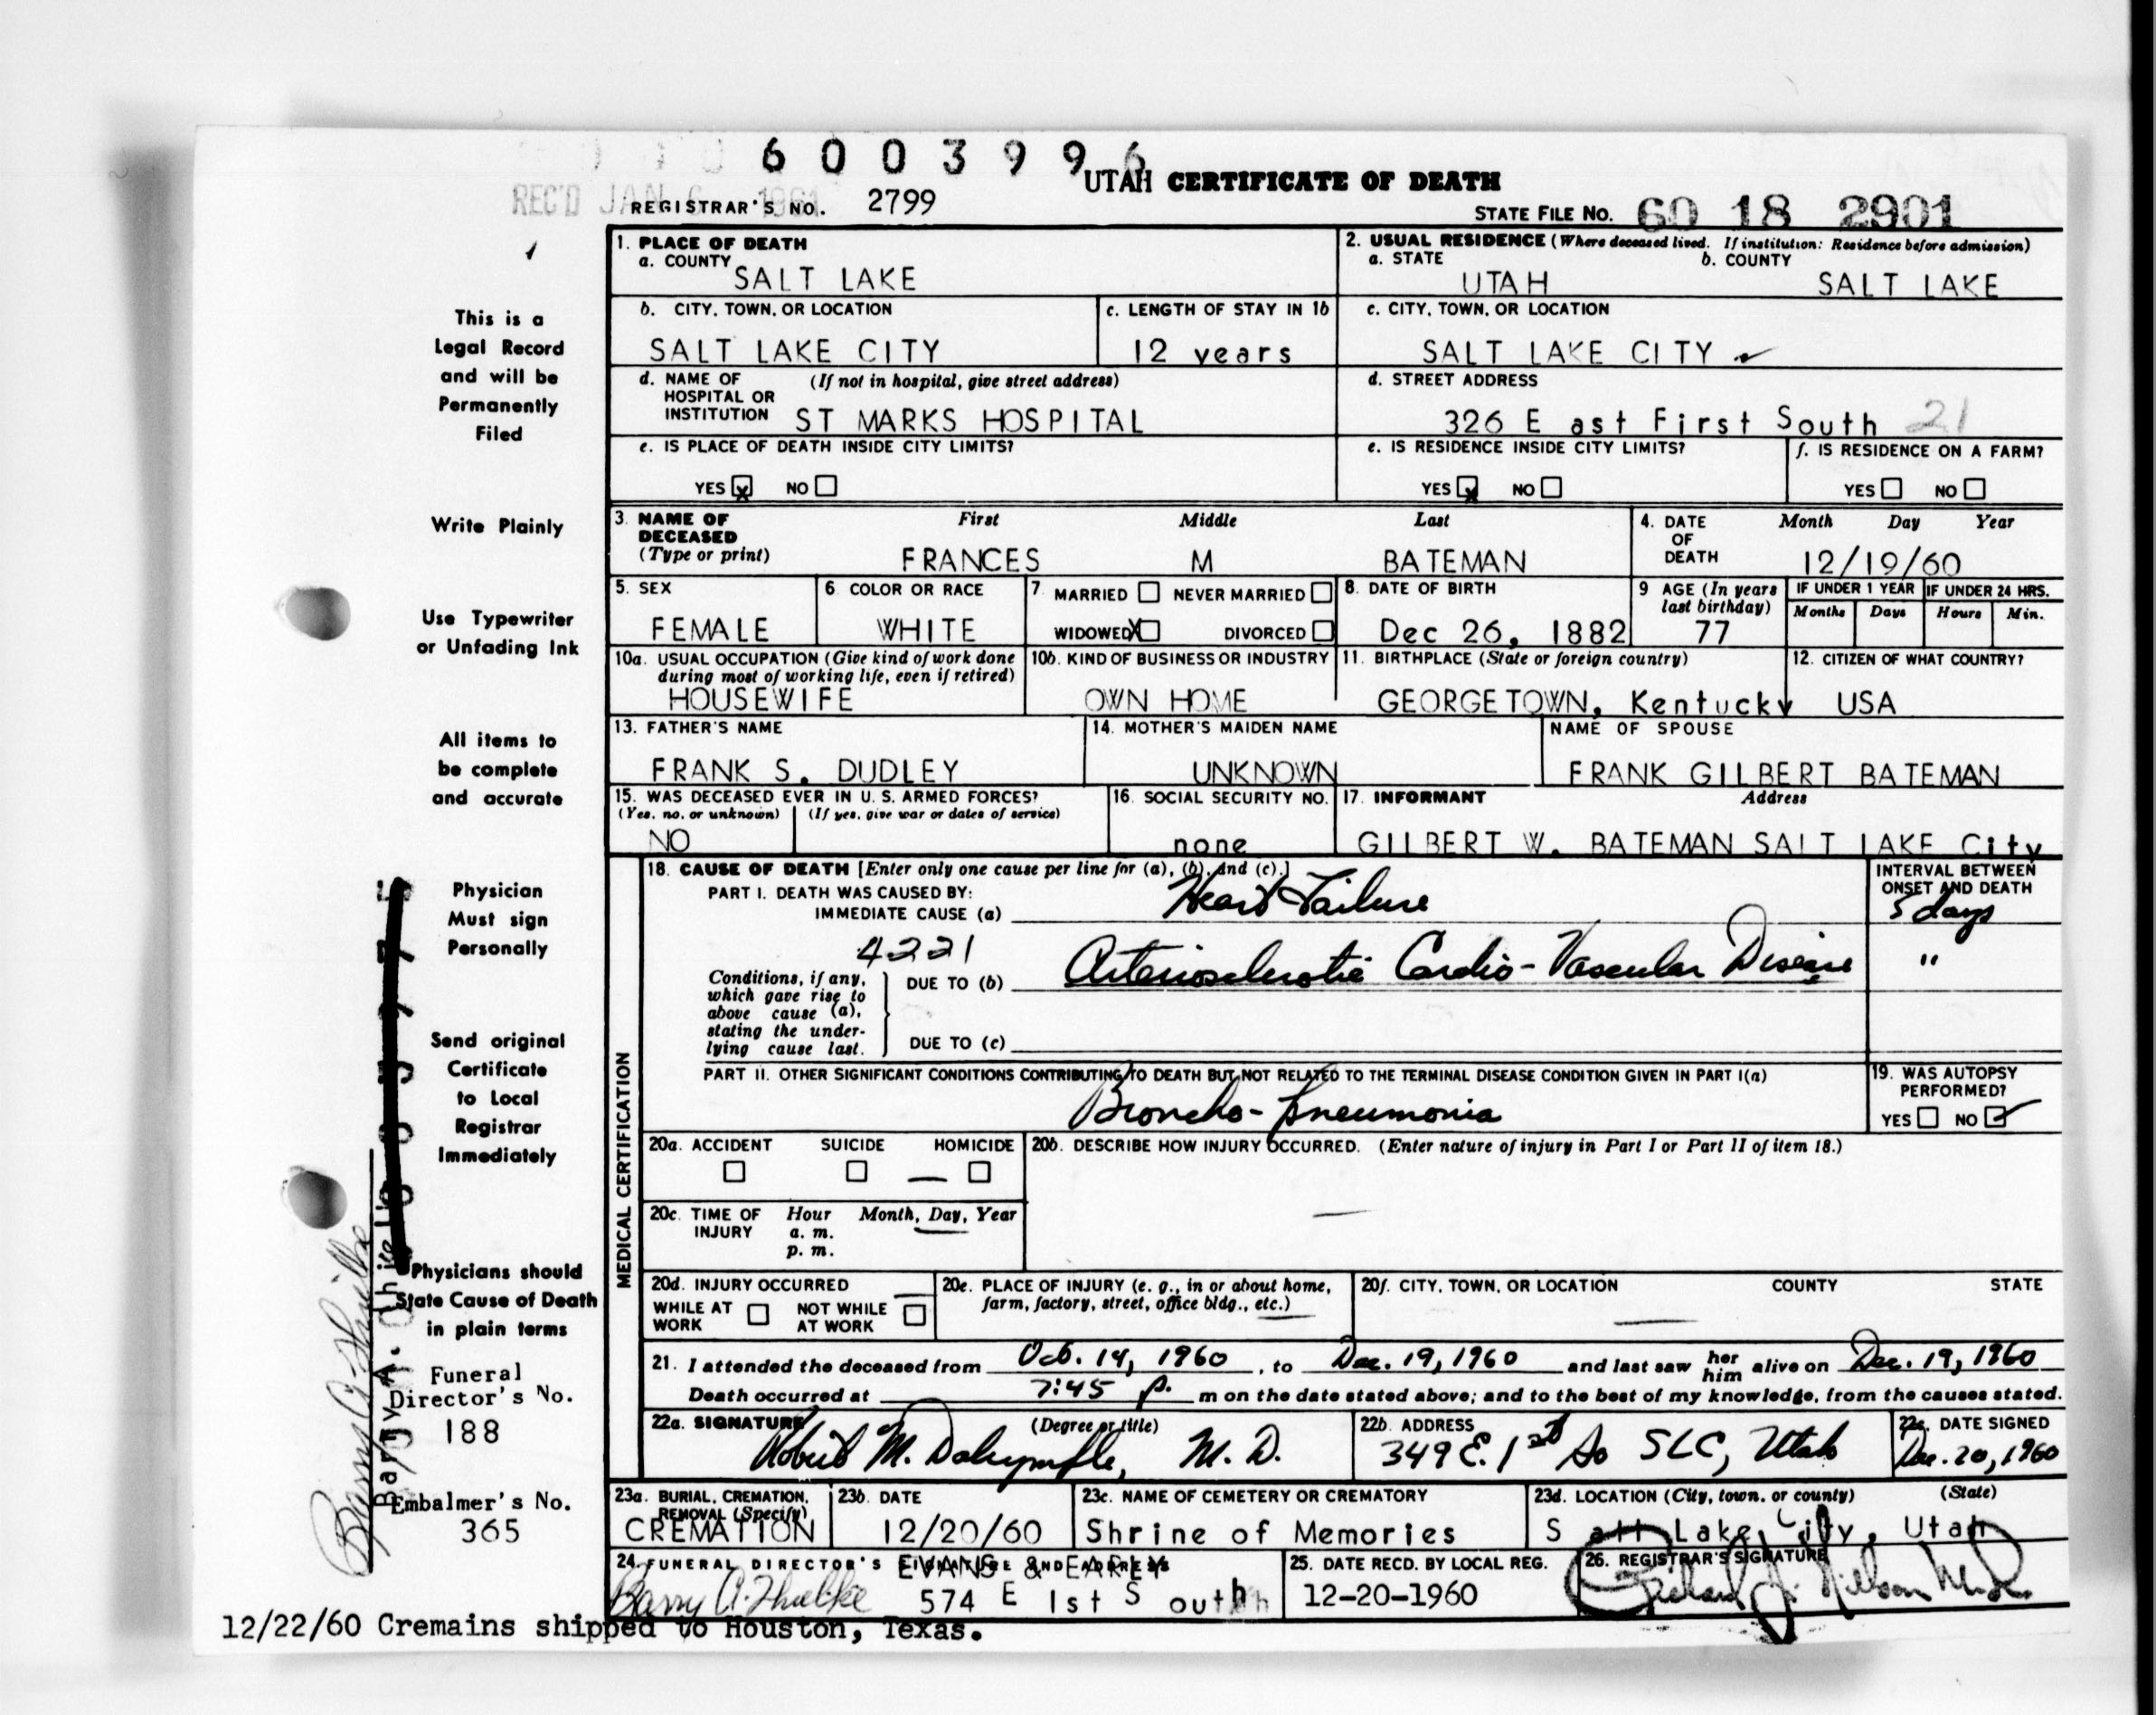 6 0 0 3 9 9 6
UTAH CERTIFICATE OF DEATH
REC'D JAN 6 1961
REGISTRAR'S NO. 2799
STATE FILE NO. 60 18 2901
1. PLACE OF DEATH
a. COUNTY
SALT LAKE
2. USUAL RESIDENCE (Where deceased lived. If institution: Residence before admission)
a. STATE b. COUNTY
UTAH SALT LAKE
b. CITY, TOWN, OR LOCATION
SALT LAKE CITY
c. LENGTH OF STAY IN 1b
12 years
c. CITY, TOWN, OR LOCATION
SALT LAKE CITY
d. NAME OF (If not in hospital, give street address)
HOSPITAL OR
INSTITUTION ST MARKS HOSPITAL
d. STREET ADDRESS
326 E ast First South 21
e. IS PLACE OF DEATH INSIDE CITY LIMITS?
YES x NO
e. IS RESIDENCE INSIDE CITY LIMITS?
YES x NO
f. IS RESIDENCE ON A FARM?
YES NO
3. NAME OF DECEASED
(Type or print)
First Middle Last
FRANCES M BATEMAN
4. DATE OF DEATH
Month Day Year
12/19/60
5. SEX
FEMALE
6 COLOR OR RACE
WHITE
7 MARRIED NEVER MARRIED
WIDOWED X DIVORCED
8. DATE OF BIRTH
Dec 26, 1882
9 AGE (In years
last birthday)
77
IF UNDER 1 YEAR IF UNDER 24 HRS.
Months Days Hours Min.
10a. USUAL OCCUPATION (Give kind of work done
during most of working life, even if retired)
HOUSEWIFE
10b. KIND OF BUSINESS OR INDUSTRY
OWN HOME
11. BIRTHPLACE (State or foreign country)
GEORGETOWN, Kentucky
12. CITIZEN OF WHAT COUNTRY?
USA
13. FATHER'S NAME
FRANK S. DUDLEY
14. MOTHER'S MAIDEN NAME
UNKNOWN
NAME OF SPOUSE
FRANK GILBERT BATEMAN
15. WAS DECEASED EVER IN U. S. ARMED FORCES?
(Yes, no, or unknown) (If yes, give war or dates of service)
NO
16. SOCIAL SECURITY NO.
none
17. INFORMANT Address
GILBERT W. BATEMAN SALT LAKE City
MEDICAL CERTIFICATION
18. CAUSE OF DEATH [Enter only one cause per line for (a), (b), and (c).]
PART I. DEATH WAS CAUSED BY:
IMMEDIATE CAUSE (a) Heart Failure
INTERVAL BETWEEN
ONSET AND DEATH
5 days
4221
Conditions, if any,
which gave rise to
above cause (a),
stating the under-
lying cause last.
DUE TO (b) Arteriosclerotic Cardio-Vascular Disease "
DUE TO (c)
PART II. OTHER SIGNIFICANT CONDITIONS CONTRIBUTING TO DEATH BUT NOT RELATED TO THE TERMINAL DISEASE CONDITION GIVEN IN PART I(a)
Broncho-pneumonia
19. WAS AUTOPSY
PERFORMED?
YES NO ✓
20a. ACCIDENT SUICIDE HOMICIDE
20b. DESCRIBE HOW INJURY OCCURRED. (Enter nature of injury in Part I or Part II of item 18.)
20c. TIME OF INJURY
Hour Month, Day, Year
a. m.
p. m.
20d. INJURY OCCURRED
WHILE AT WORK NOT WHILE AT WORK
20e. PLACE OF INJURY (e. g., in or about home,
farm, factory, street, office bldg., etc.)
20f. CITY, TOWN, OR LOCATION COUNTY STATE
21. I attended the deceased from Oct. 14, 1960, to Dec. 19, 1960 and last saw her him alive on Dec. 19, 1960
Death occurred at 7:45 p. m on the date stated above; and to the best of my knowledge, from the causes stated.
22a. SIGNATURE (Degree or title)
Robert M. Dalrymple, M. D.
22b. ADDRESS
349 E. 1st So SLC, Utah
22c. DATE SIGNED
Dec. 20, 1960
23a. BURIAL, CREMATION,
REMOVAL (Specify)
CREMATION
23b. DATE
12/20/60
23c. NAME OF CEMETERY OR CREMATORY
Shrine of Memories
23d. LOCATION (City, town, or county) (State)
S alt Lake City, Utah
24. FUNERAL DIRECTOR'S SIGNATURE AND ADDRESS
EVANS & EARLY
574 E 1st S outh
25. DATE RECD. BY LOCAL REG.
12-20-1960
26. REGISTRAR'S SIGNATURE
12/22/60 Cremains shipped to Houston, Texas.
This is a
Legal Record
and will be
Permanently
Filed
Write Plainly
Use Typewriter
or Unfading Ink
All items to
be complete
and accurate
Physician
Must sign
Personally
Send original
Certificate
to Local
Registrar
Immediately
Physicians should
State Cause of Death
in plain terms
Funeral
Director's No.
188
Embalmer's No.
365